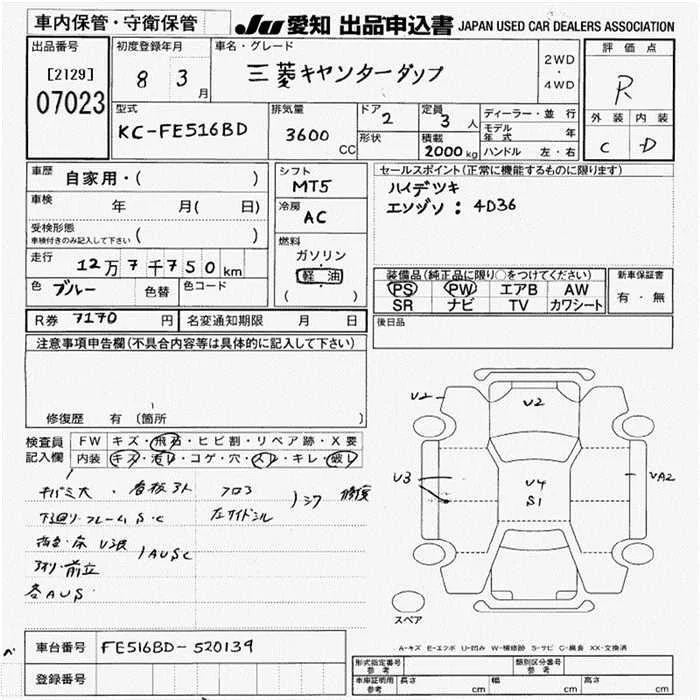 車内保管・守衛保管
JU 愛知 出品申込書 JAPAN USED CAR DEALERS ASSOCIATION
出品番号
[2129]
07023
初度登録年月
8 3月
車名・グレード
三菱キャンターダンプ
2WD
・
4WD
評価点
R
外装 内装
C D
型式
KC-FE516BD
排気量
3600 CC
ドア
2
形状
定員
3人
積載
2000kg
ディーラー・並行
モデル年式 年
ハンドル 左・右
車歴 自家用・( )
車検 年 月( 日)
受検形態
車検付きのみ記入して下さい ( )
走行 12万7千750km
色 ブルー 色替 色コード
シフト
MT5
冷房
AC
燃料
ガソリン
軽油
( )
セールスポイント(正常に機能するものに限ります)
ハイデツキ
エンゾン:4D36
装備品(純正品に限り○をつけてください)
PS PW エアB AW
SR ナビ TV カワシート
新車保証書
有・無
R券 7170円 名変通知期限 月 日
後日品
注意事項申告欄(不具合内容等は具体的に記入して下さい)
修復歴 有 (箇所 )
検査員記入欄
FW キズ・飛石・ヒビ割・リペア跡・X要
内装 キズ・汚レ・コゲ・穴・スレ・キレ・破レ
下廻リ・フレームS・C
左サイドシル
修復
前立
各AUS
U2
U2
U3
U4
S1
UA2
スペア
A-キズ E-エクボ U-凹み W-補修跡 S-サビ C-腐食 XX-交換済
車台番号 FE516BD-520139
登録番号
形式指定番号 参考
類別区分番号 参考
車庫証明用 参考 長さ cm 幅 cm 高さ cm